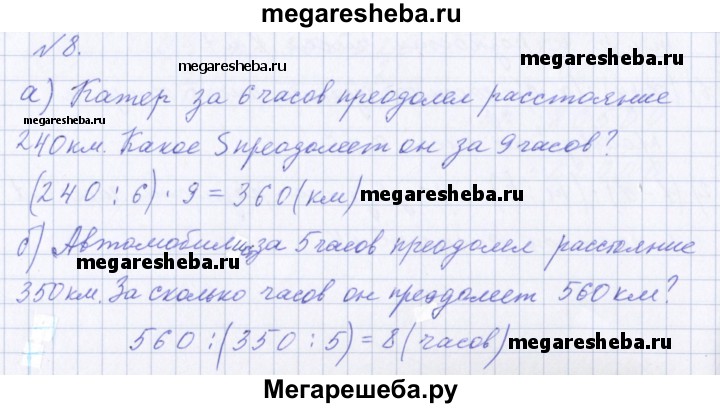 megaresheba.ru
№ 8.
megaresheba.ru
megaresheba.ru
а) Катер за 6 часов преодолел расстояние
240 км. Какое S преодолеет он за 9 часов?
(240 : 6) · 9 = 360 (км)
megaresheba.ru
б) Автомобиль за 5 часов преодолел расстояние
megaresheba.ru
350 км. За сколько часов он преодолеет 560 км?
560 : (350 : 5) = 8 (часов)
megaresheba.ru
Мегарешеба.ру